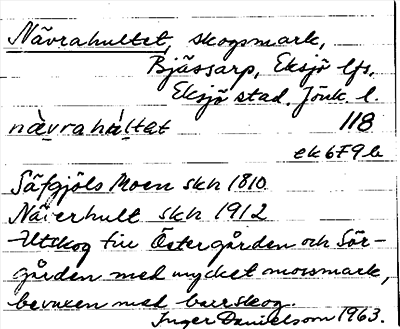 Nävrahultet, skogsmark,
Bjässarp, Eksjö lfs,
Eksjö stad. Jönk. l.
nàvrahúltat 118
ek 679 b
Säfgjöls Moen skh 1810
Näverhult skh 1912
Utskog till Östergården och Sör-
gården med mycket mossmark,
bevuxen med barrskog.
Inger Danielsson 1963.